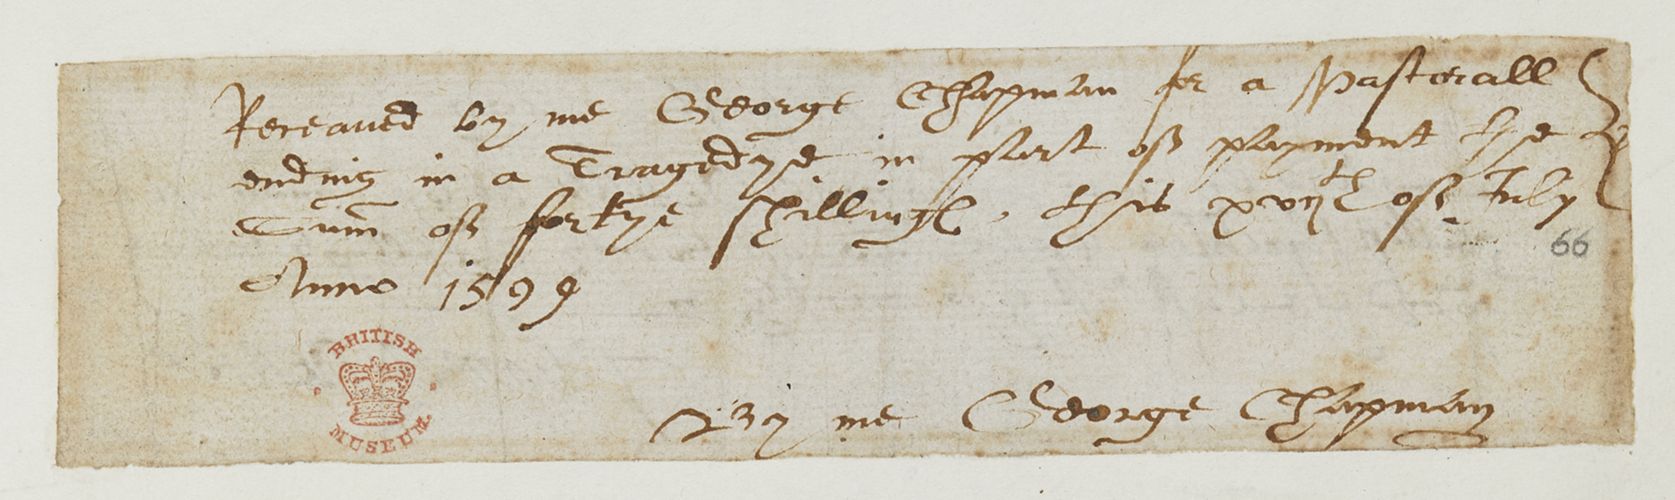 Receaued by me George Chapman for a Pastorall
ending in a Tragedye in part of payment the
Sum̄ of fortye shillinges, this xvijth of July
Anno 1599
66
By me George Chapman
BRITISH
MUSEUM